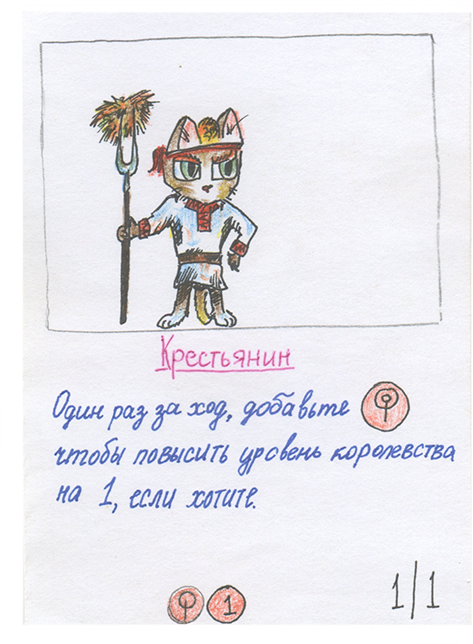 Крестьянин
Один раз за ход, добавьте
чтобы повысить уровень королевства
на 1, если хотите.
1
1/1